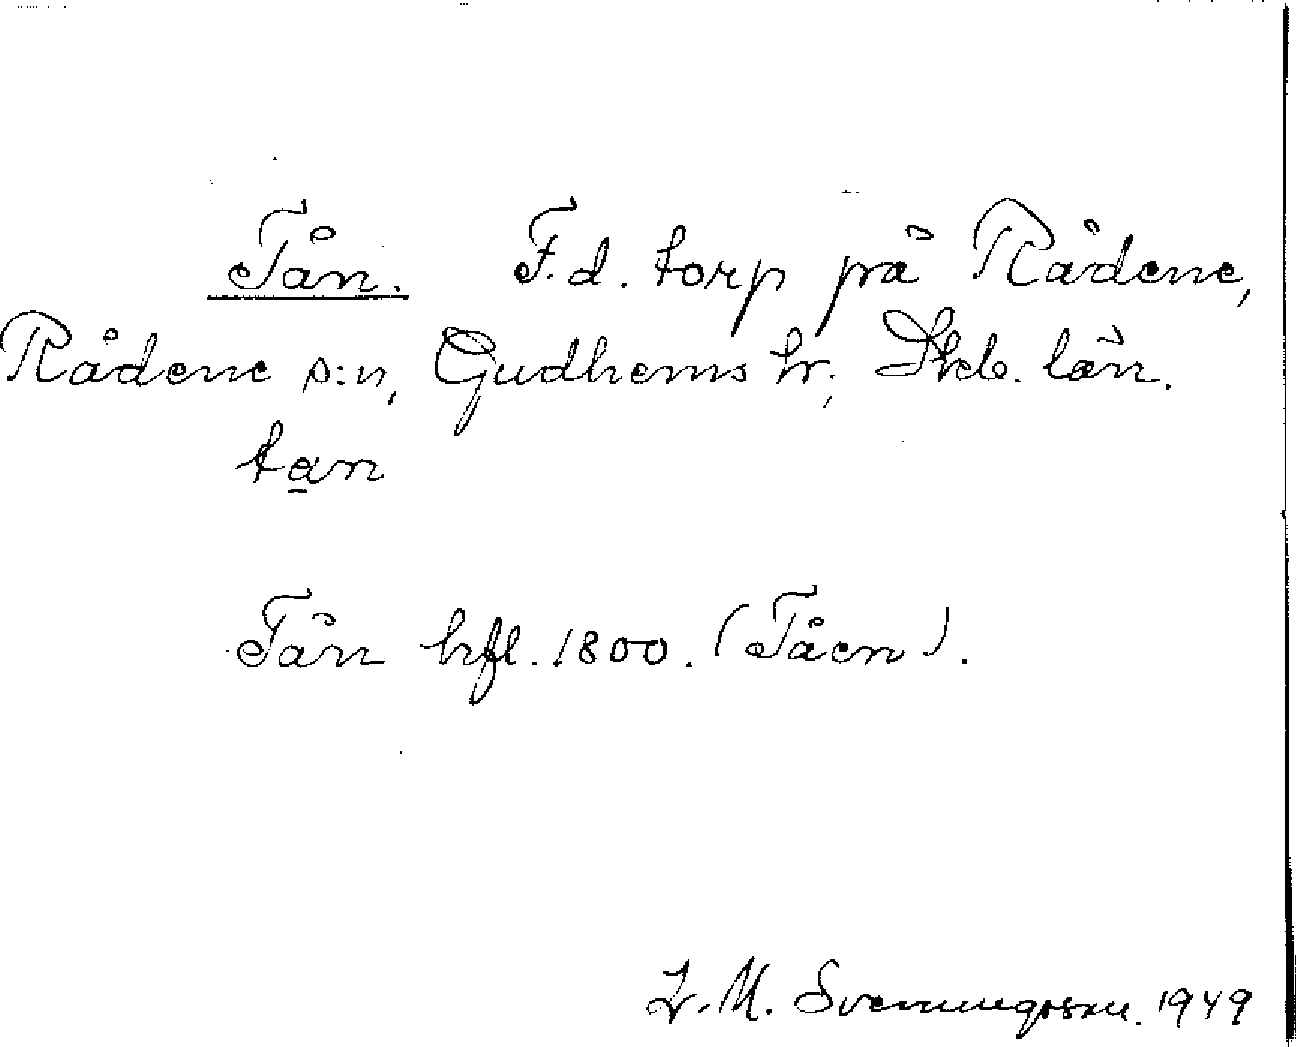 Tån. F.d. torp på Rådene,
Rådene s:n, Gudhems hr, Skb. län.
tan
Tån hfl. 1800. (Tåen).
L. M. Svenungsson. 1949